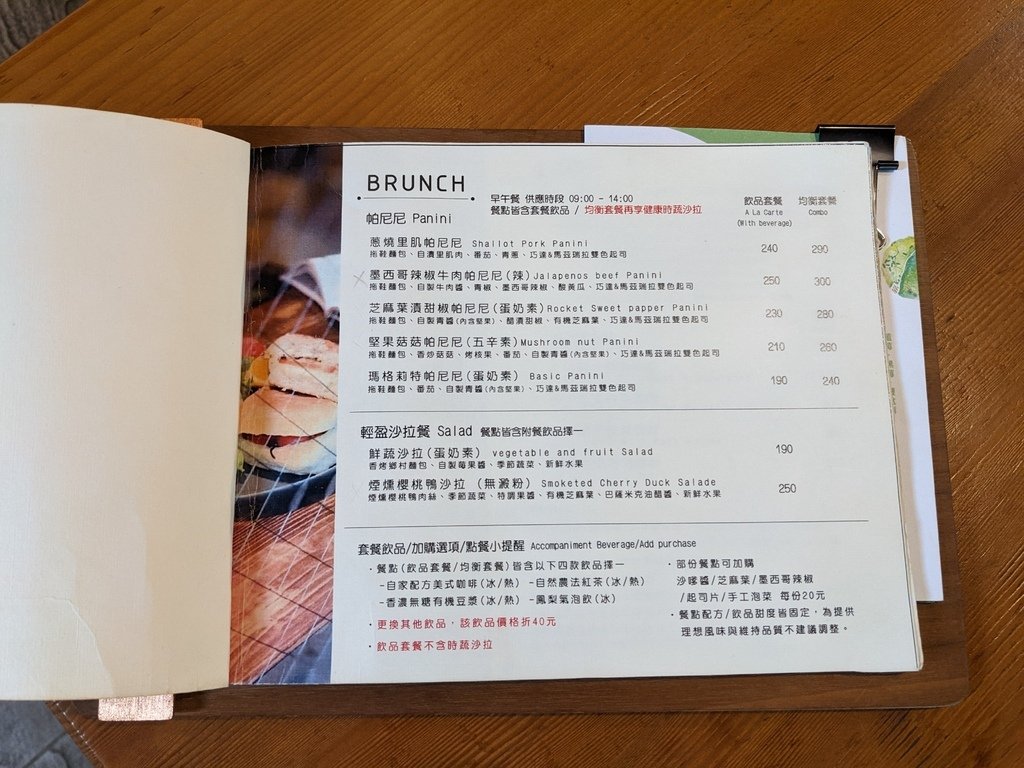 BRUNCH
早午餐 供應時段 09:00 - 14:00
餐點皆含套餐飲品 / 均衡套餐再享健康時蔬沙拉
飲品套餐 均衡套餐
A La Carte Combo
(With beverage)
帕尼尼 Panini
蔥燒里肌帕尼尼 Shallot Pork Panini 240 290
拖鞋麵包、自漬里肌肉、番茄、青蔥、巧達&馬茲瑞拉雙色起司
墨西哥辣椒牛肉帕尼尼(辣) Jalapenos beef Panini 250 300
拖鞋麵包、自製牛肉醬、青椒、墨西哥辣椒、酸黃瓜、巧達&馬茲瑞拉雙色起司
芝麻葉漬甜椒帕尼尼(蛋奶素) Rocket Sweet papper Panini 230 280
拖鞋麵包、自製青醬(內含堅果)、醋漬甜椒、有機芝麻葉、巧達&馬茲瑞拉雙色起司
堅果菇菇帕尼尼(五辛素) Mushroom nut Panini 210 260
拖鞋麵包、香炒菇菇、烤核果、番茄、自製青醬(內含堅果)、巧達&馬茲瑞拉雙色起司
瑪格莉特帕尼尼(蛋奶素) Basic Panini 190 240
拖鞋麵包、番茄、自製青醬(內含堅果)、巧達&馬茲瑞拉雙色起司
輕盈沙拉餐 Salad 餐點皆含附餐飲品擇一
鮮蔬沙拉(蛋奶素) vegetable and fruit Salad 190
香烤鄉村麵包、自製莓果醬、季節蔬菜、新鮮水果
煙燻櫻桃鴨沙拉 (無澱粉) Smoketed Cherry Duck Salade 250
煙燻櫻桃鴨肉絲、季節蔬菜、特調果醬、有機芝麻菜、巴薩米克油醋醬、新鮮水果
套餐飲品/加購選項/點餐小提醒 Accompaniment Beverage/Add purchase
・餐點(飲品套餐/均衡套餐)皆含以下四款飲品擇一
-自家配方美式咖啡(冰/熱) -自然農法紅茶(冰/熱)
-香濃無糖有機豆漿(冰/熱) -鳳梨氣泡飲(冰)
・更換其他飲品，該飲品價格折40元
・飲品套餐不含時蔬沙拉
・部份餐點可加購
沙嗲醬/芝麻葉/墨西哥辣椒
/起司片/手工泡菜 每份20元
・餐點配方/飲品甜度皆固定，為提供
理想風味與維持品質不建議調整。